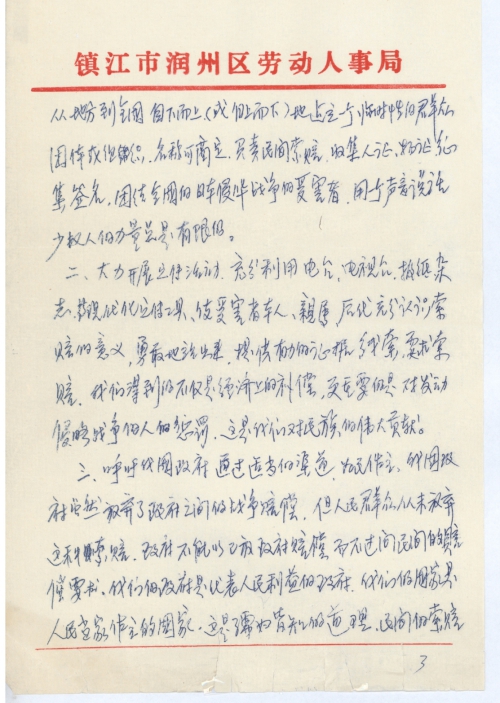 镇江市润州区劳动人事局
从地方到全国自下而上(或自上而下)地上立个临时性的群众
团体或组织,名称可商定,负责民间索赔,收集人证、物证,征
集签名,团结全国的日本侵华战争的受害者,用一个声音说话
少数人的力量总是有限的。
二、大力开展宣传活动,充分利用电台,电视台,报纸杂
志,等现代化宣传工具,使受害者本人、亲属、后代充分认识索
赔的意义,勇敢地站出来,提供有力的证据线索,要求索
赔,我们得到的不仅是经济上的补偿,更重要的是对发动
侵略战争的人的惩罚,这是我们对民族的伟大贡献。
三、呼吁我国政府通过适当的渠道,为民作主,我国政
府虽然放弃了政府之间的战争赔偿,但人民群众从未放弃
这种索赔,政府不能以政府赔偿而不过问民间的赔
偿要求,我们的政府是代表人民利益的政府,我们的国家是
人民当家作主的国家,这是妇孺皆知的道理,民间的索赔
3